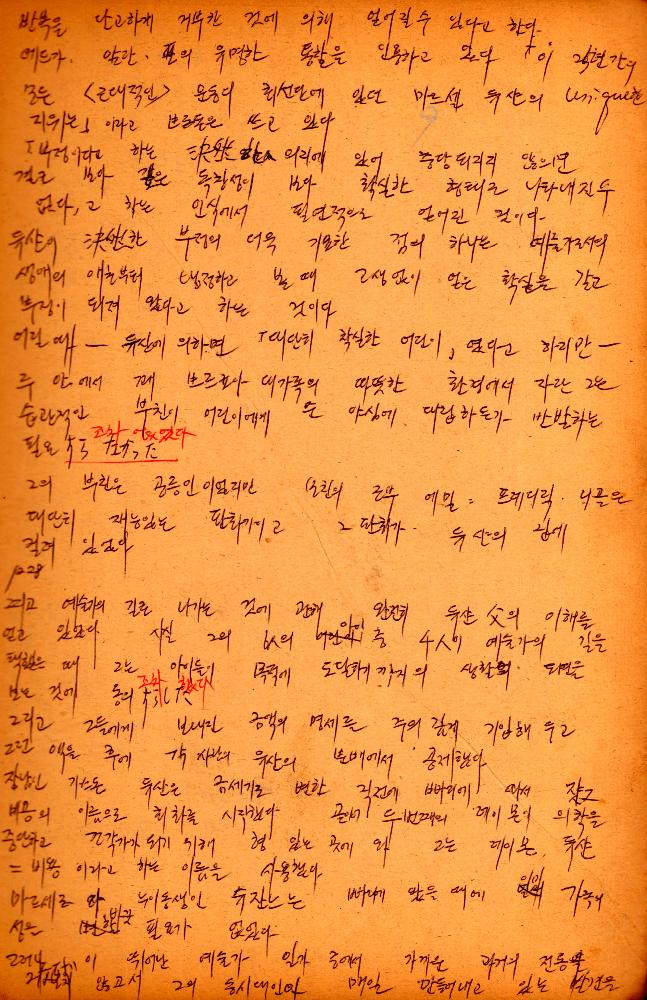 반복을 단고하게 거부한 것에 의해 얻어질 수 있다고 한다.
에드가. 알란. 포의 유명한 통찰을 인용하고 있다 「이
모든 <근대적인> 운동의 최선단에 있던 마르셀 뒤샹의 Unique한
지위는」 이라고 브르통은 쓰고 있다
「부정이라고 하는 決然한 의리에 있어 충당되리지 않으면
결코 보다 깊은 독창성이 보다 확실한 형태로 나타내진 수
없다, 고 하는 인식에서 필연적으로 얻어진 것이다.
뒤샹의 決然한 부정의 더욱 기묘한 점의 하나는 예술가로서의
생애의 애초부터 냉정하고 볼 때 고생없이 얻은 확실을 갖고
부정이 되져 왔다고 하는 것이다
어린 때 — 뒤샹에 의하면 「대단히 착실한 어린이」였다고 하지만 —
루앙에서 꽤 브르조아 대가족의 따뜻한 환경에서 자란 그는
습관적인 부친이 어린이에게 둔 야심에 대립하든가 반발하는
필요 조차 없었다 すらなかった
그의 부친은 공증인이었지만 (모친의 조부 에밀 = 프레데릭. 니콜은
대단히 재능있는 판화가이고 그 판화가 뒤샹의 집에
걸려 있었다
p28
그리고 예술가의 길로 나가는 것에 관해 완전히 뒤샹 父의 이해를
얻고 있었다 사실 그의 6人의 아이 중 4人이 예술가의 길을
택했을 때 그는 아이들이 목적에 도달하기까지의 생활의 뒤를
보는 것에 동의 조차 했다 すらした
그리고 그들에게 보내진 금액의 명세를 주의 깊게 기입해 두고
그런 액을 후에 각자의 유산의 분배에서 공제했다
장남인 가스톤 뒤샹은 금세기로 변한 직전에 빠리에 와서 쟈크
비용의 이름으로 회화를 시작했다 곧이어 두번째의 레이몬이 의학을
중단하고 조각가가 되기 위해 형 있는 곳에 와 그는 레이몬. 뒤샹
= 비용 이라고 하는 이름을 사용했다
마르세르와 누이동생인 쉬잔느는 빠리에 왔을 때에 가족의
성을 바꿀 필요가 없었다
그러나 이 뛰어난 예술가 일가 중에서 가까운 과거의 전통을
않고서 그의 동시대인이 매일 만들어내고 있는 발견을